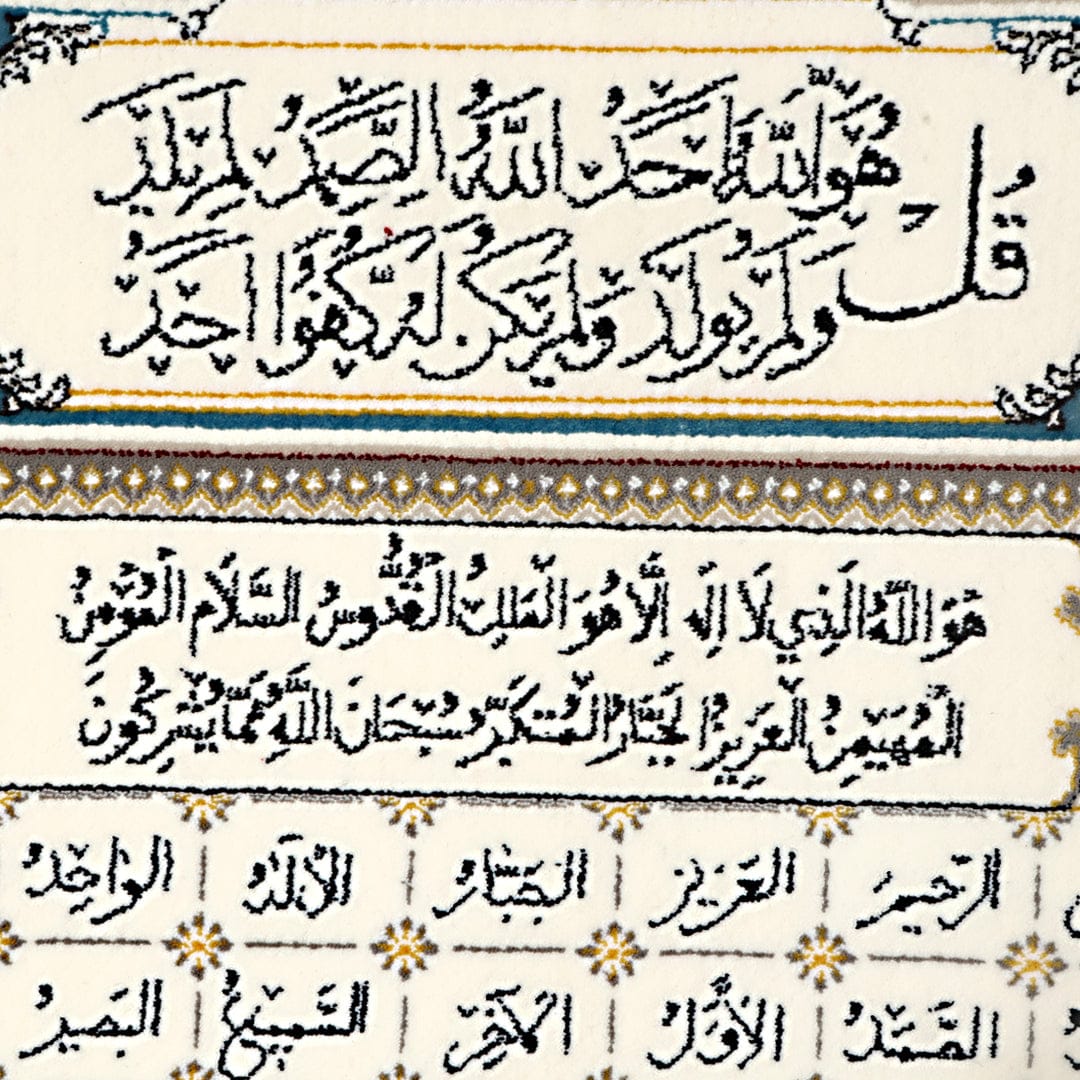 قُلْ هُوَ اللَّهُ أَحَدٌ اللَّهُ الصَّمَدُ لَمْ يَلِدْ
وَلَمْ يُولَدْ وَلَمْ يَكُنْ لَهُ كُفُوًا أَحَدٌ
هُوَ اللَّهُ الَّذِي لَا إِلَهَ إِلَّا هُوَ الْمَلِكُ الْقُدُّوسُ السَّلَامُ الْمُؤْمِنُ
الْمُهَيْمِنُ الْعَزِيزُ الْجَبَّارُ الْمُتَكَبِّرُ سُبْحَانَ اللَّهِ عَمَّا يُشْرِكُونَ
الرَّحِيمُ الْعَزِيزُ الْجَبَّارُ الْوَاحِدُ
الصَّمَدُ الْأَوَّلُ الْآخِرُ السَّمِيعُ الْبَصِيرُ